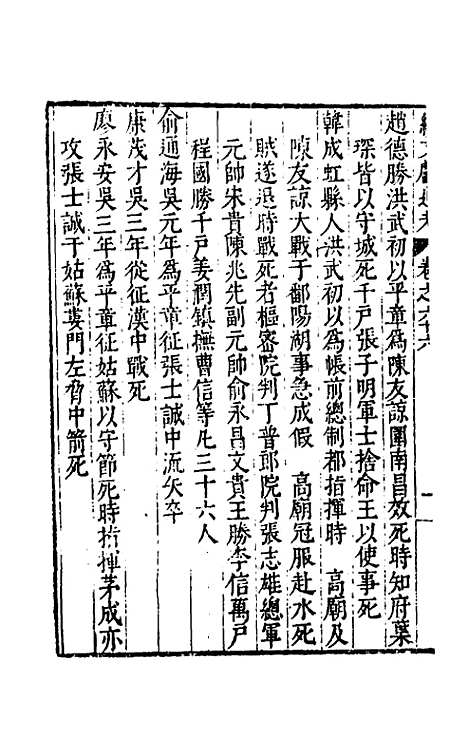 趙德勝洪武初以平章爲陳友諒圍南昌效死時知府葉
琛皆以守城死千戶張子明軍士捨命王以使事死
韓成虹縣人洪武初以爲帳前總制都指揮時　高廟及
陳友諒大戰于鄱陽湖事急成假　高廟冠服赴水死
賊遂退時戰死者樞密院判丁普郎院判張志雄總軍
元帥宋貴陳兆先副元帥俞永昌文貴王勝李信萬戶
程國勝千戶姜潤鎮撫曹信等凡三十六人
俞通海吳元年爲平章征張士誠中流矢卒
康茂才吳三年從征漢中戰死
廖永安吳三年爲平章征姑蘇以守節死時指揮茅成亦
攻張士誠于姑蘇婁門左脅中箭死